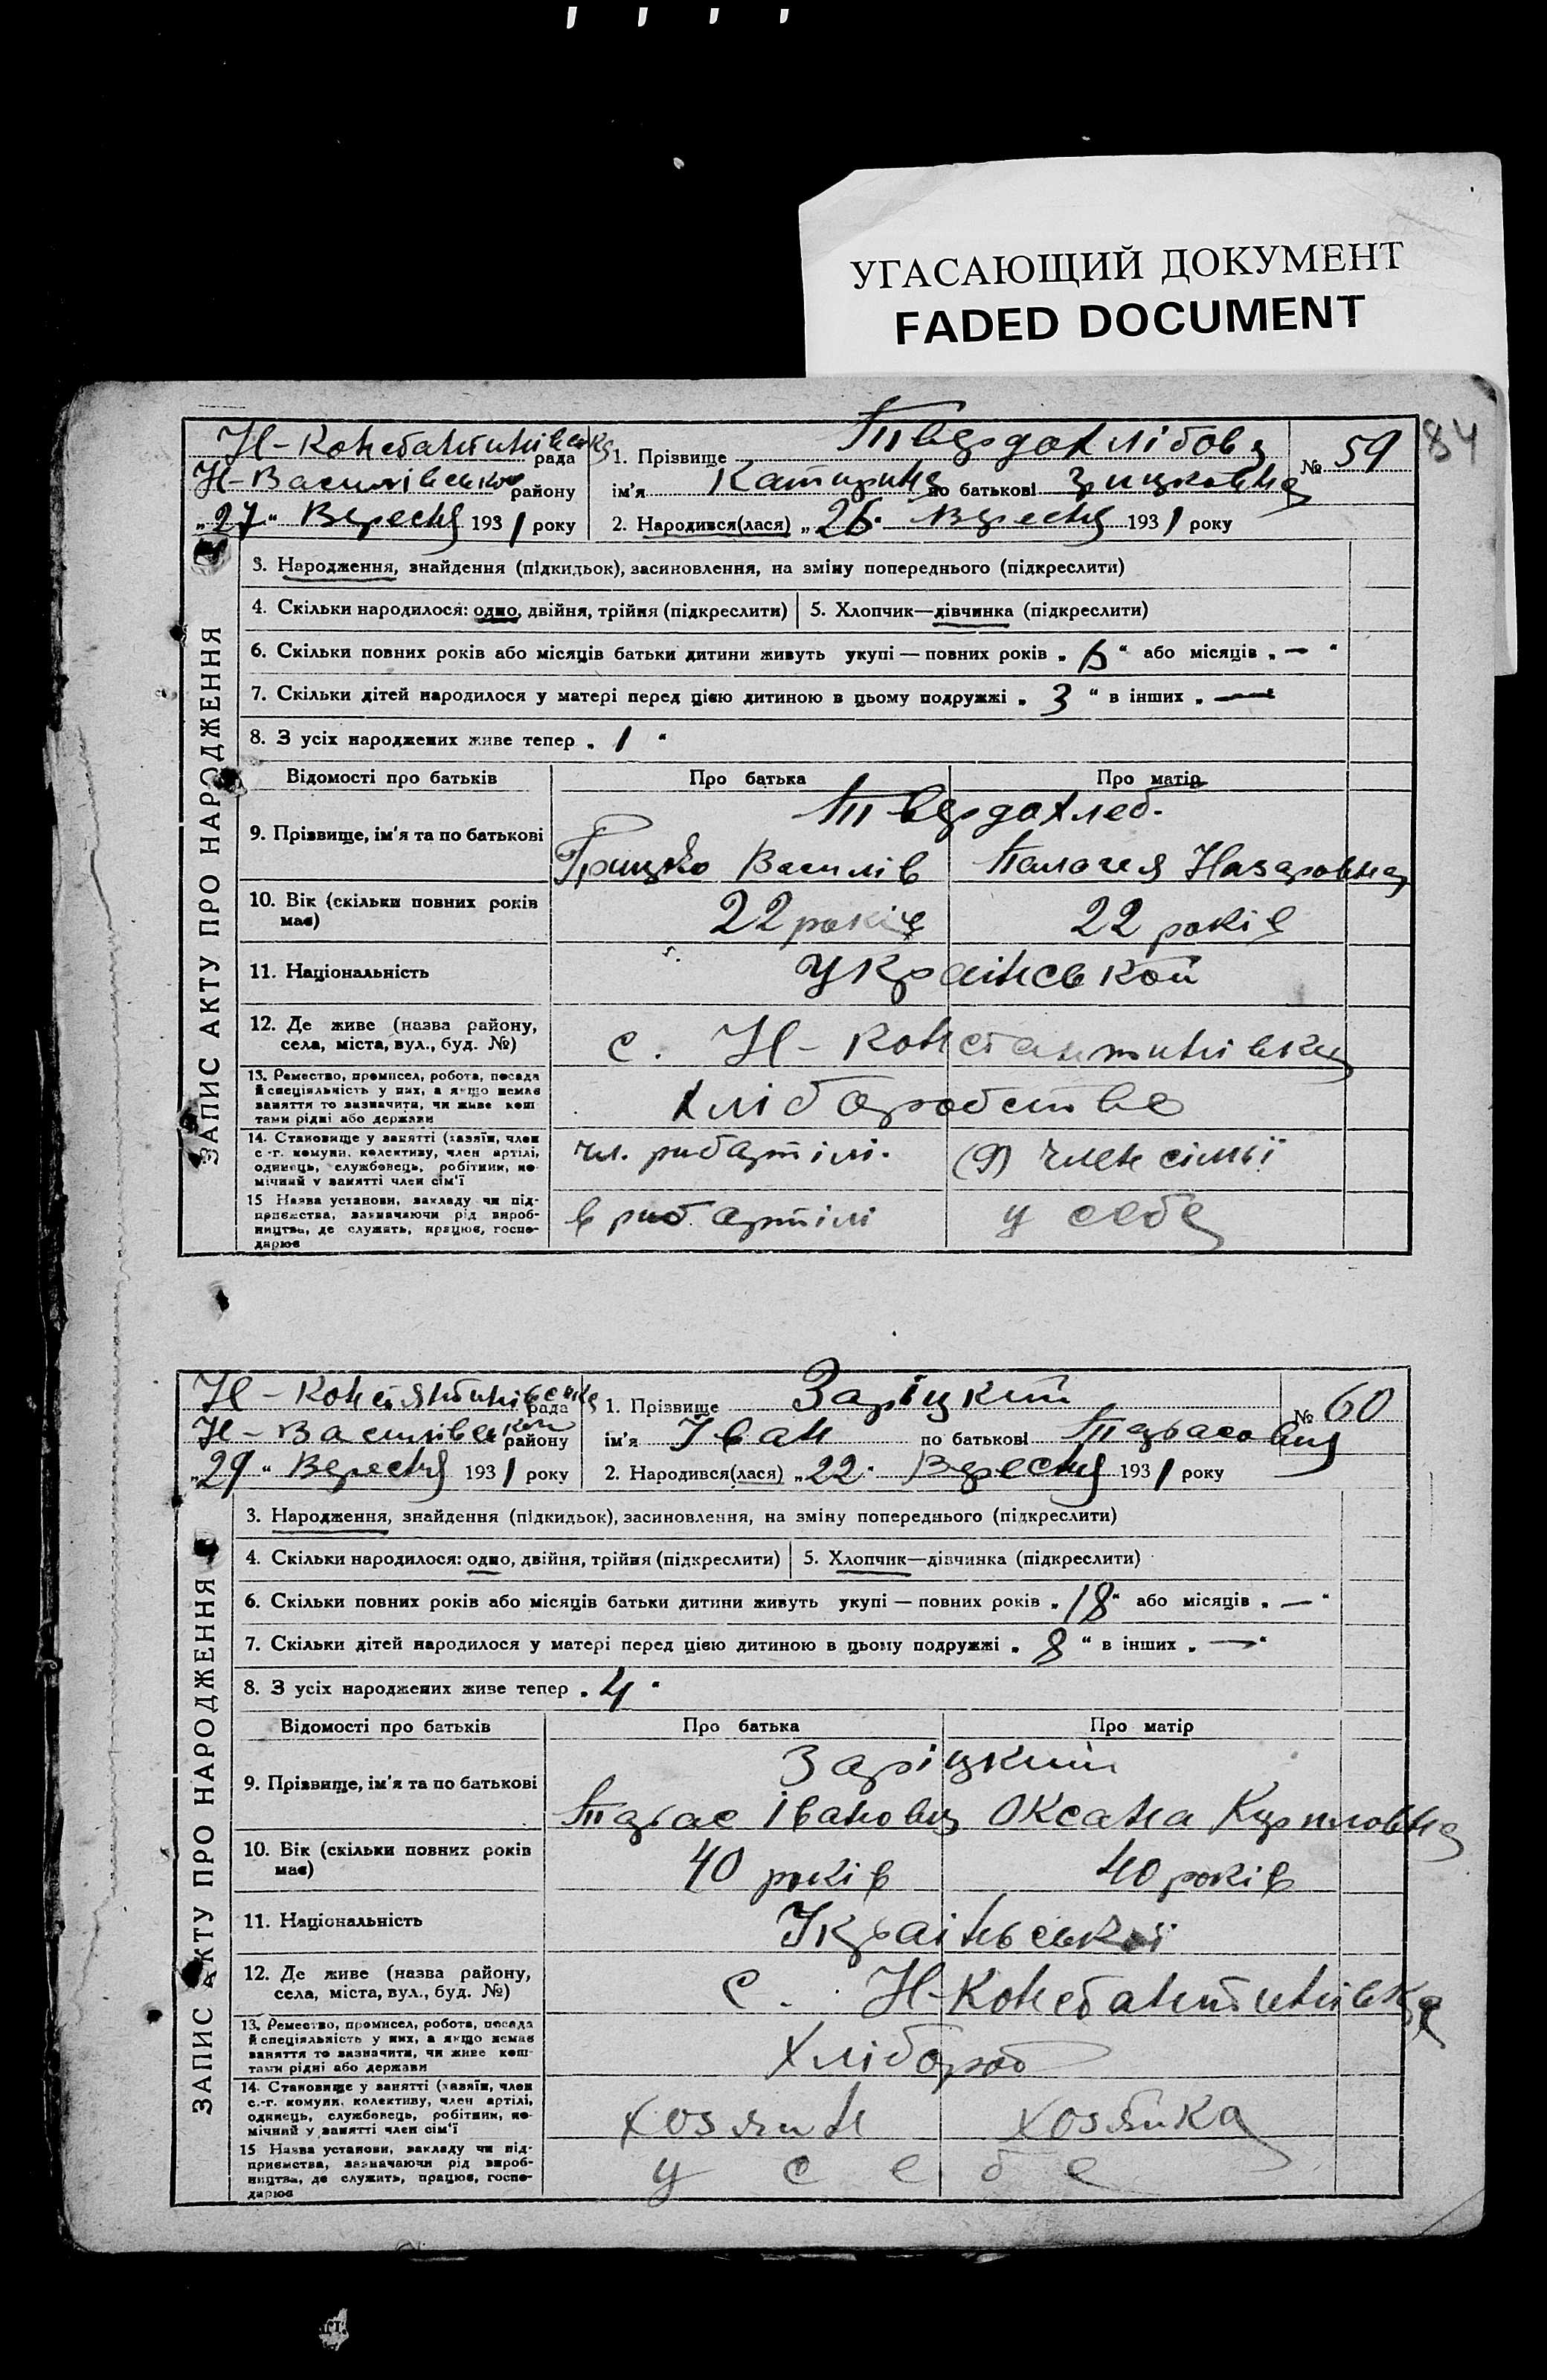 УГАСАЮЩИЙ ДОКУМЕНТ
FADED DOCUMENT
84
Н-Константинівська рада
Н-Василівського району
„27“ Вересня 1931 року
1. Прізвище Твердохлібова
№ 59
ім'я Катирина по батькові Грицковна
2. Народився(лася) „26“ Вересня 1931 року
ЗАПИС АКТУ ПРО НАРОДЖЕННЯ
3. Народження, знайдення (підкидьок), засиновлення, на зміну попереднього (підкреслити)
4. Скільки народилося: одно, двійня, трійня (підкреслити)
5. Хлопчик—дівчинка (підкреслити)
6. Скільки повних років або місяців батьки дитини живуть укупі — повних років „ 6 “ або місяців „ — “
7. Скільки дітей народилося у матері перед цією дитиною в цьому подружжі „ 3 “ в інших „ — “
8. З усіх народжених живе тепер „ 1 “
Відомості про батьків
Про батька
Про матір
9. Прізвище, ім'я та по батькові
Твердохлеб.
Грицко Василів
Палагея Назаровна
10. Вік (скільки повних років має)
22 років
22 років
11. Національність
Українськой
12. Де живе (назва району, села, міста, вул., буд. №)
с. Н-Константинівка
13. Ремество, промисел, робота, посада й спеціяльність у них, а якщо немає заняття то зазначити, чи живе коштами рідні або держави
хліборобство
14. Становище у занятті (хазяїн, член с.-г. комуни, колективу, член артілі, одинець, службовець, робітник, помічний у занятті член сім'ї
чл. риб артілі.
(9) член сімьї
15 Назва установи, закладу чи підприємства, зазначаючи рід виробництва, де служить, працює, господарює
в риб. артілі
у себе
Н-Константинівська рада
Н-Василівской району
„29“ Вересня 1931 року
1. Прізвище Заріцкий
№ 60
ім'я Іван по батькові Тарасович
2. Народився(лася) „22“ Вересня 1931 року
ЗАПИС АКТУ ПРО НАРОДЖЕННЯ
3. Народження, знайдення (підкидьок), засиновлення, на зміну попереднього (підкреслити)
4. Скільки народилося: одно, двійня, трійня (підкреслити)
5. Хлопчик—дівчинка (підкреслити)
6. Скільки повних років або місяців батьки дитини живуть укупі — повних років „ 18 “ або місяців „ — “
7. Скільки дітей народилося у матері перед цією дитиною в цьому подружжі „ 8 “ в інших „ — “
8. З усіх народжених живе тепер „ 4 “
Відомості про батьків
Про батька
Про матір
9. Прізвище, ім'я та по батькові
Заріцкий
Тарас Іванович
Оксана Кириловна
10. Вік (скільки повних років має)
40 років
40 років
11. Національність
Української
12. Де живе (назва району, села, міста, вул., буд. №)
с. Н-Константинівка
13. Ремество, промисел, робота, посада й спеціяльність у них, а якщо немає заняття то зазначити, чи живе коштами рідні або держави
Хлібороб
14. Становище у занятті (хазяїн, член с.-г. комуни, колективу, член артілі, одинець, службовець, робітник, помічний у занятті член сім'ї
хозяин
хозяйка
15 Назва установи, закладу чи підприємства, зазначаючи рід виробництва, де служить, працює, господарює
у себе